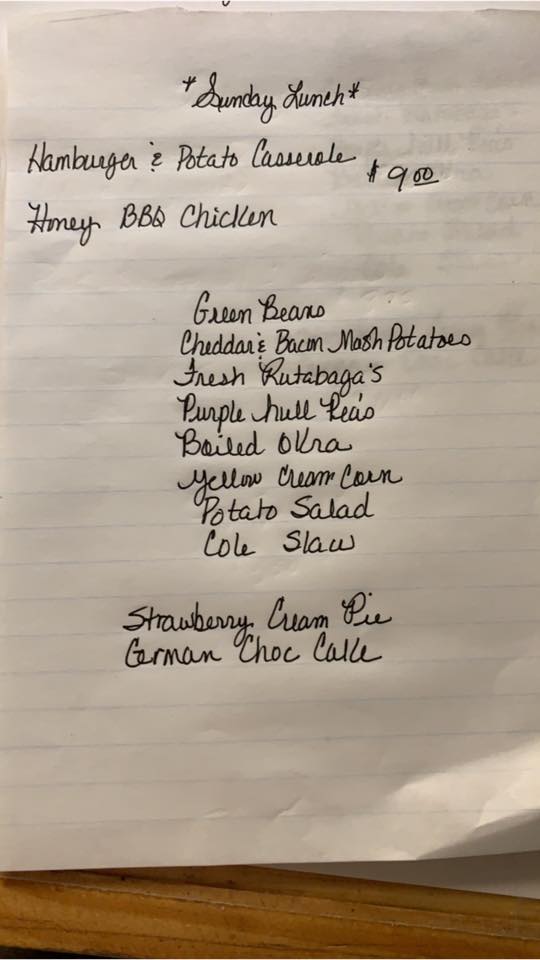 *Sunday Lunch*
Hamburger & Potato Casserole
$9.00
Honey BBQ Chicken
Green Beans
Cheddar & Bacon Mash Potatoes
Fresh Rutabaga's
Purple hull Pea's
Boiled Okra
Yellow Cream Corn
Potato Salad
Cole Slaw
Strawberry Cream Pie
German Choc Cake